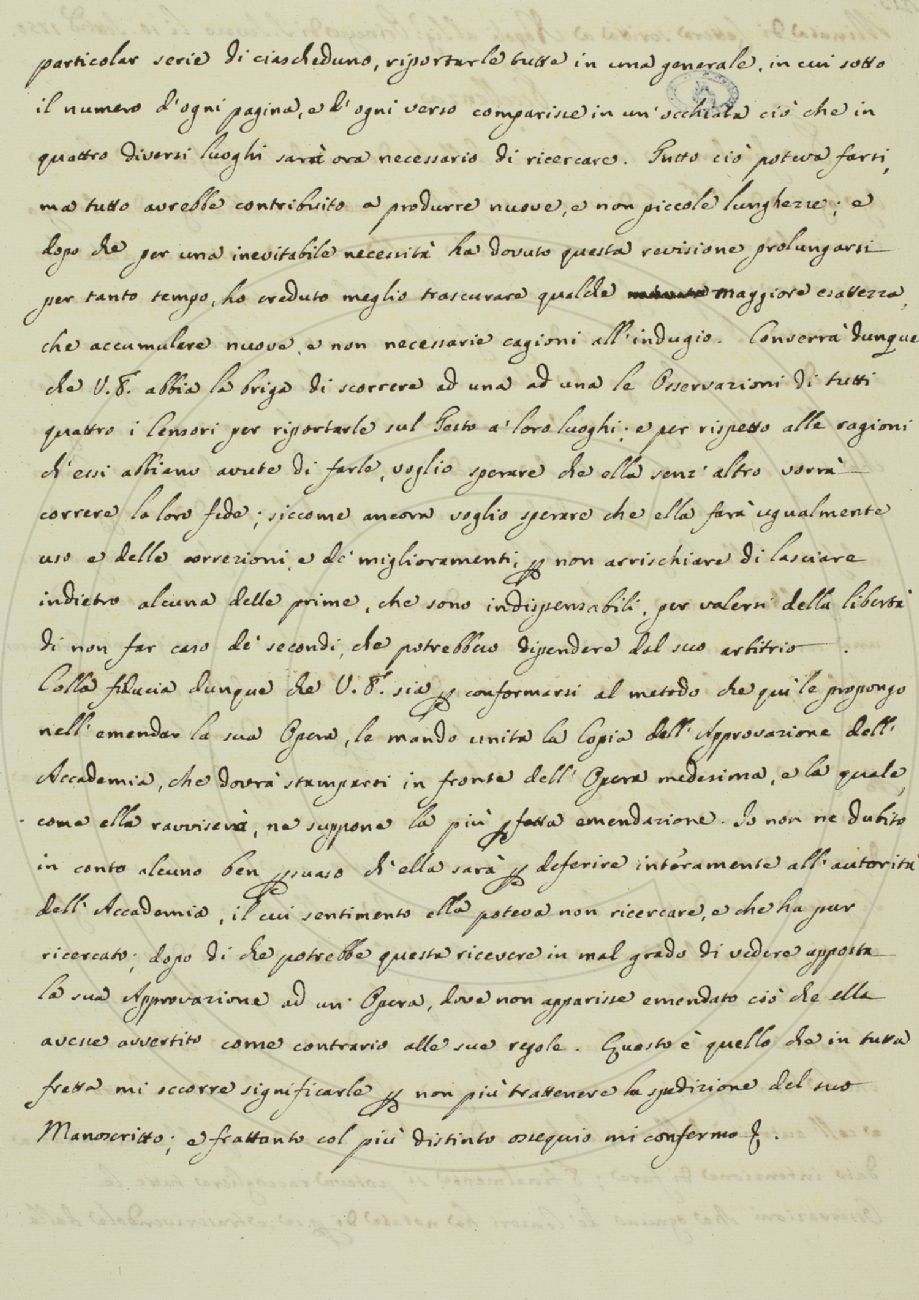 particolar serie di ciascheduno, riportarle tutte in una generale, in cui sotto
il numero d'ogni pagina, e d'ogni verso comparisse in un'occhiata ciò che in
quattro diversi luoghi sarà ora necessario di ricercare. Tutto ciò poteva farsi,
ma tutto avrebbe contribuito a produrre nuove, e non piccole lunghezze; e
dopo che per una inevitabile necessità ha dovuto questa revisione prolungarsi
per tanto tempo, ho creduto meglio trascurare qualche maggiore esattezza,
che accumulare nuove, e non necessarie cagioni all'indugio. Converrà dunque
che V.S. abbia la briga di scorrere ad una ad una le Osservazioni di tutti
quattro i Censori per riportarle sul Testo a' loro luoghi; e per rispetto alle ragioni
ch'essi abbiano avute di farle, voglio sperare che ella senz'altro vorrà
correre la loro fede; siccome ancora voglio sperare che ella farà ugualmente
uso e delle correzioni, e de' miglioramenti, p non arrischiare di lasciare
indietro alcuna delle prime, che sono indispensabili, per valersi della libertà
di non far caso de' secondi, che potrebbero dipendere dal suo arbitrio.
Colla fiducia dunque che V.S. sia p conformarsi al metodo che qui le propongo
nell'emendar la sua Opera, le mando unita la Copia dell'Approvazione dell'
Accademia, che dovrà stamparsi in fronte dell'Opera medesima, e la quale,
come ella ravviserà, ne suppone la più pfetta emendazione. Io non ne dubito
in conto alcuno ben psuaso ch'ella sarà p deferire interamente all'autorità
dell'Accademia, il cui sentimento ella poteva non ricercare, e che ha pur
ricercato; dopo di che potrebbe questa ricevere in mal grado di vedere apposta
la sua Approvazione ad un'Opera, dove non apparisse emendato ciò che ella
avesse avvertito come contrario alle sue regole. Questo è quello che in tutta
fretta mi occorre significarle p non più trattenere la spedizione del suo
Manoscritto; e frattanto col più distinto ossequio mi confermo